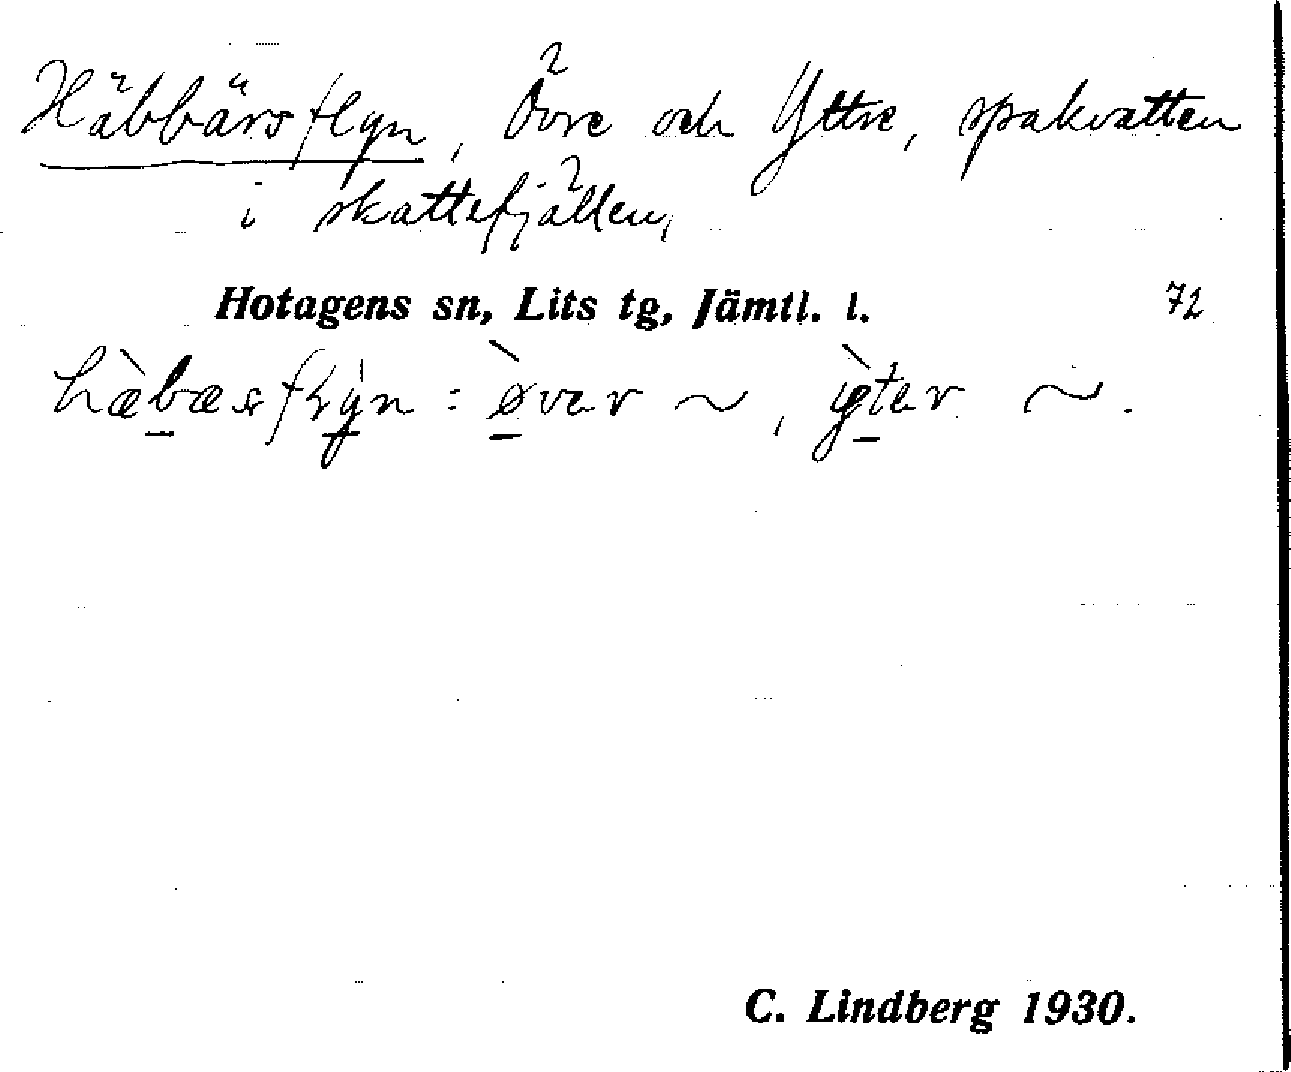 Häbbärsflyn, Övre och Yttre, spakvatten
i skattefjällen,
Hotagens sn, Lits tg, Jämtl. l. 72
hæ̀bæsflỳn : ø̀var ~, ỳtar ~.
C. Lindberg 1930.